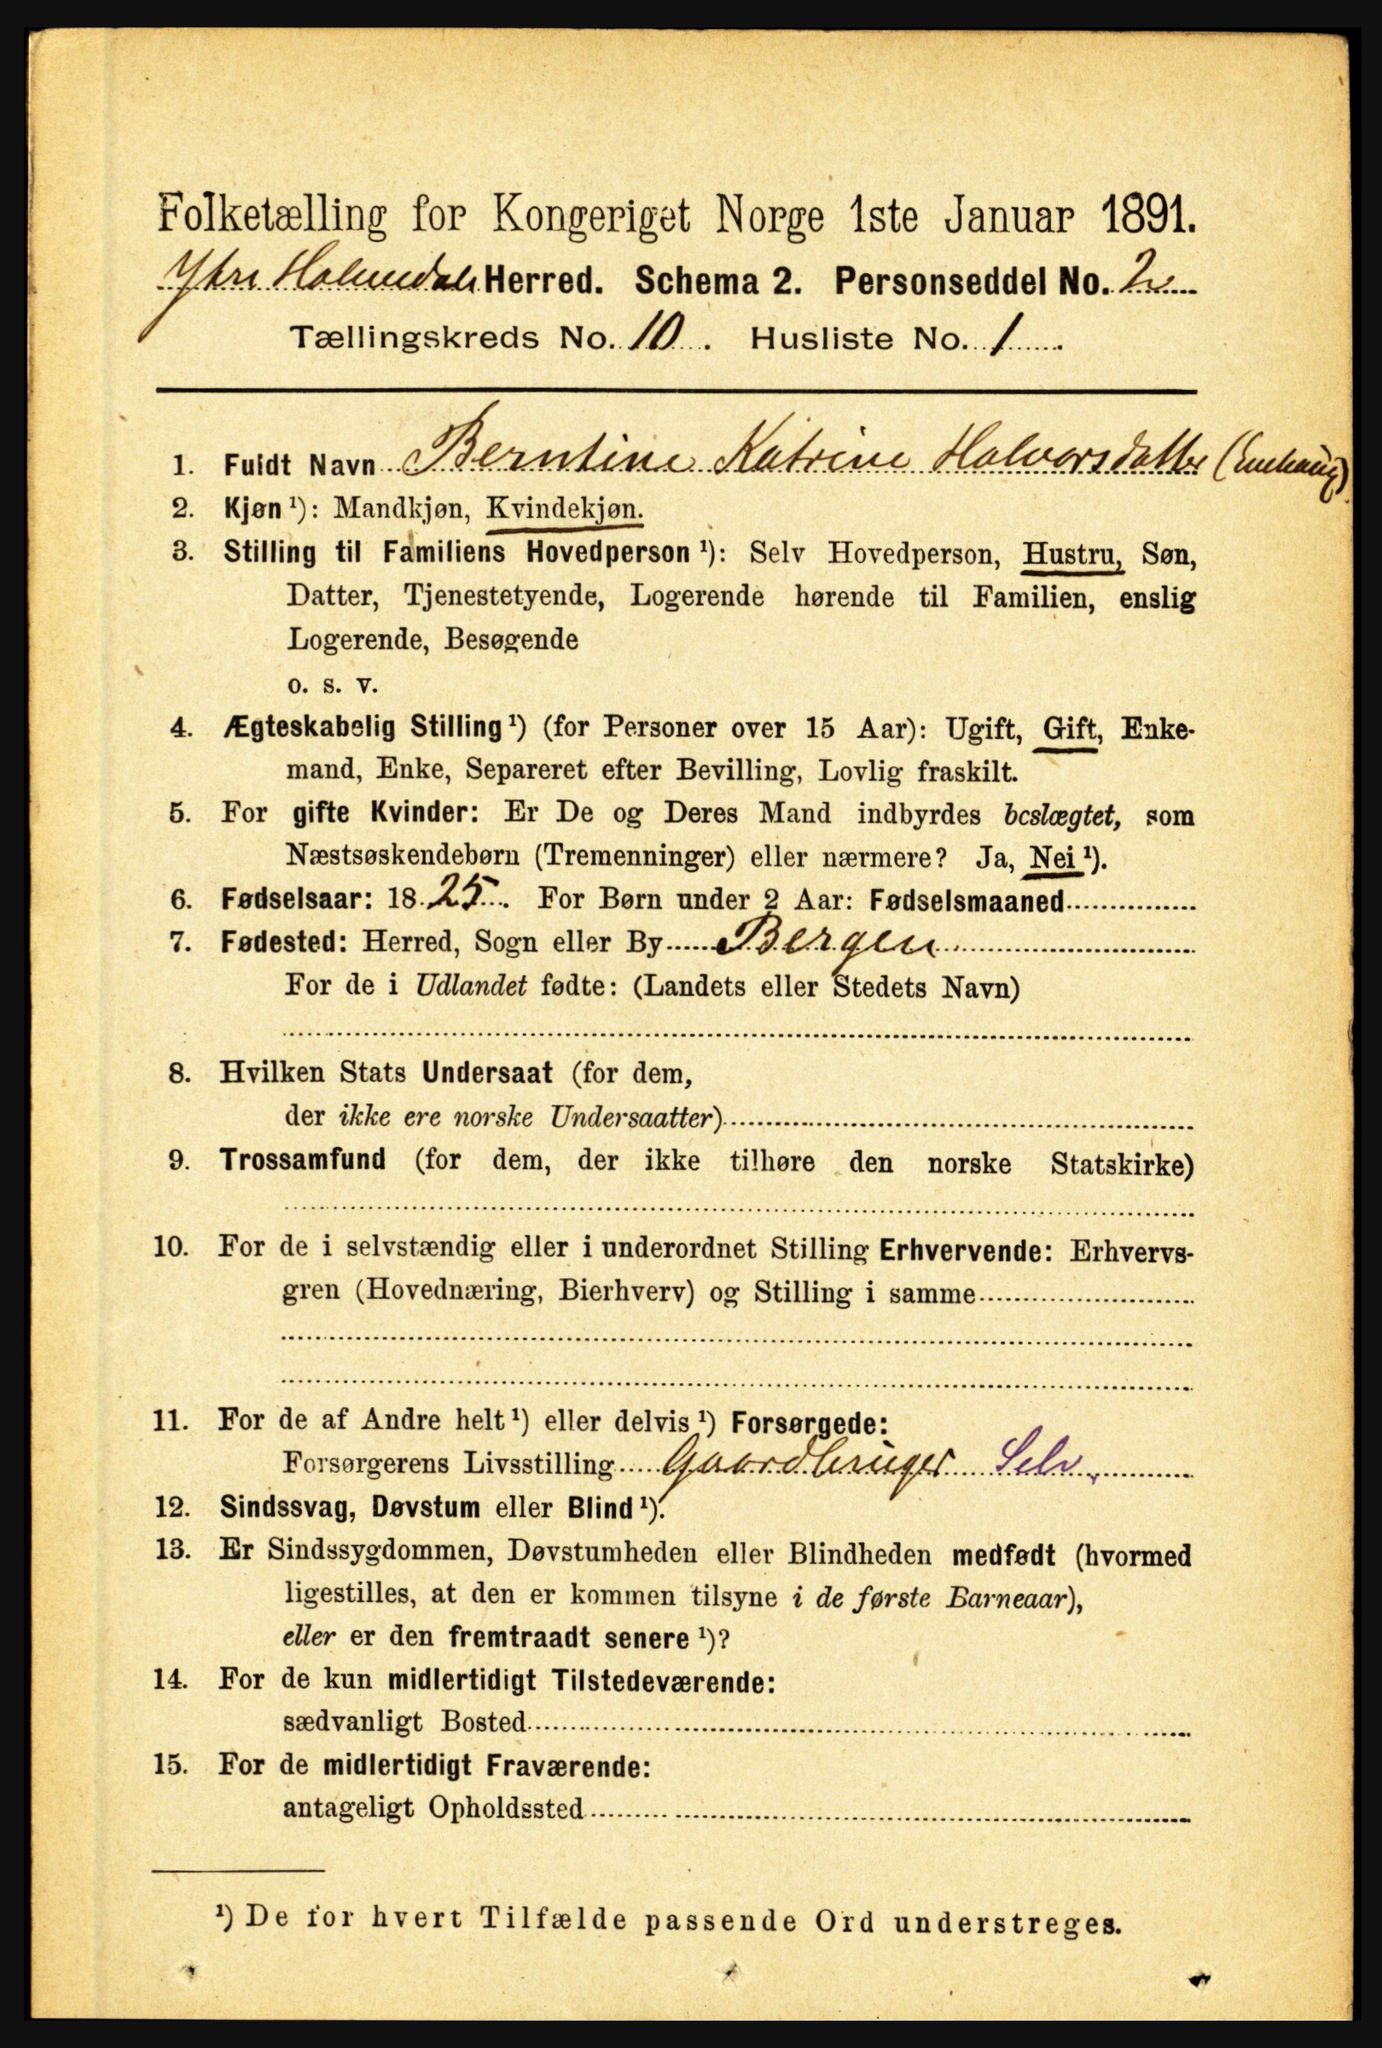 Folketælling for Kongeriget Norge 1ste Januar 1891.
Ytre Holmedals Herred. Schema 2. Personseddel No. 2
Tællingskreds No. 10. Husliste No. 1
1. Fuldt Navn Berntine Katrine Halvorsdatter
2. Kjøn ¹): Mandkjøn, Kvindekjøn.
3. Stilling til Familiens Hovedperson ¹): Selv Hovedperson, Hustru, Søn,
Datter, Tjenestetyende, Logerende hørende til Familien, enslig
Logerende, Besøgende
o. s. v.
4. Ægteskabelig Stilling ¹) (for Personer over 15 Aar): Ugift, Gift, Enke-
mand, Enke, Separeret efter Bevilling, Lovlig fraskilt.
5. For gifte Kvinder: Er De og Deres Mand indbyrdes beslægtet, som
Næstsøskendebørn (Tremenninger) eller nærmere? Ja, Nei ¹).
6. Fødselsaar: 1825. For Børn under 2 Aar: Fødselsmaaned
7. Fødested: Herred, Sogn eller By Bergen
For de i Udlandet fødte: (Landets eller Stedets Navn)
8. Hvilken Stats Undersaat (for dem,
der ikke ere norske Undersaatter)
9. Trossamfund (for dem, der ikke tilhøre den norske Statskirke)
10. For de i selvstændig eller i underordnet Stilling Erhvervende: Erhvervs-
gren (Hovednæring, Bierhverv) og Stilling i samme
11. For de af Andre helt ¹) eller delvis ¹) Forsørgede:
Forsørgerens Livsstilling Gaardbruger Selv.
12. Sindssvag, Døvstum eller Blind ¹).
13. Er Sindssygdommen, Døvstumheden eller Blindheden medfødt (hvormed
ligestilles, at den er kommen tilsyne i de første Barneaar),
eller er den fremtraadt senere ¹)?
14. For de kun midlertidigt Tilstedeværende:
sædvanligt Bosted
15. For de midlertidigt Fraværende:
antageligt Opholdssted
¹) De for hvert Tilfælde passende Ord understreges.